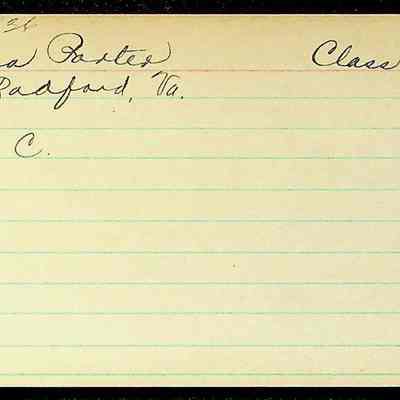 26
a Porter Class
Radford, Va.
C.